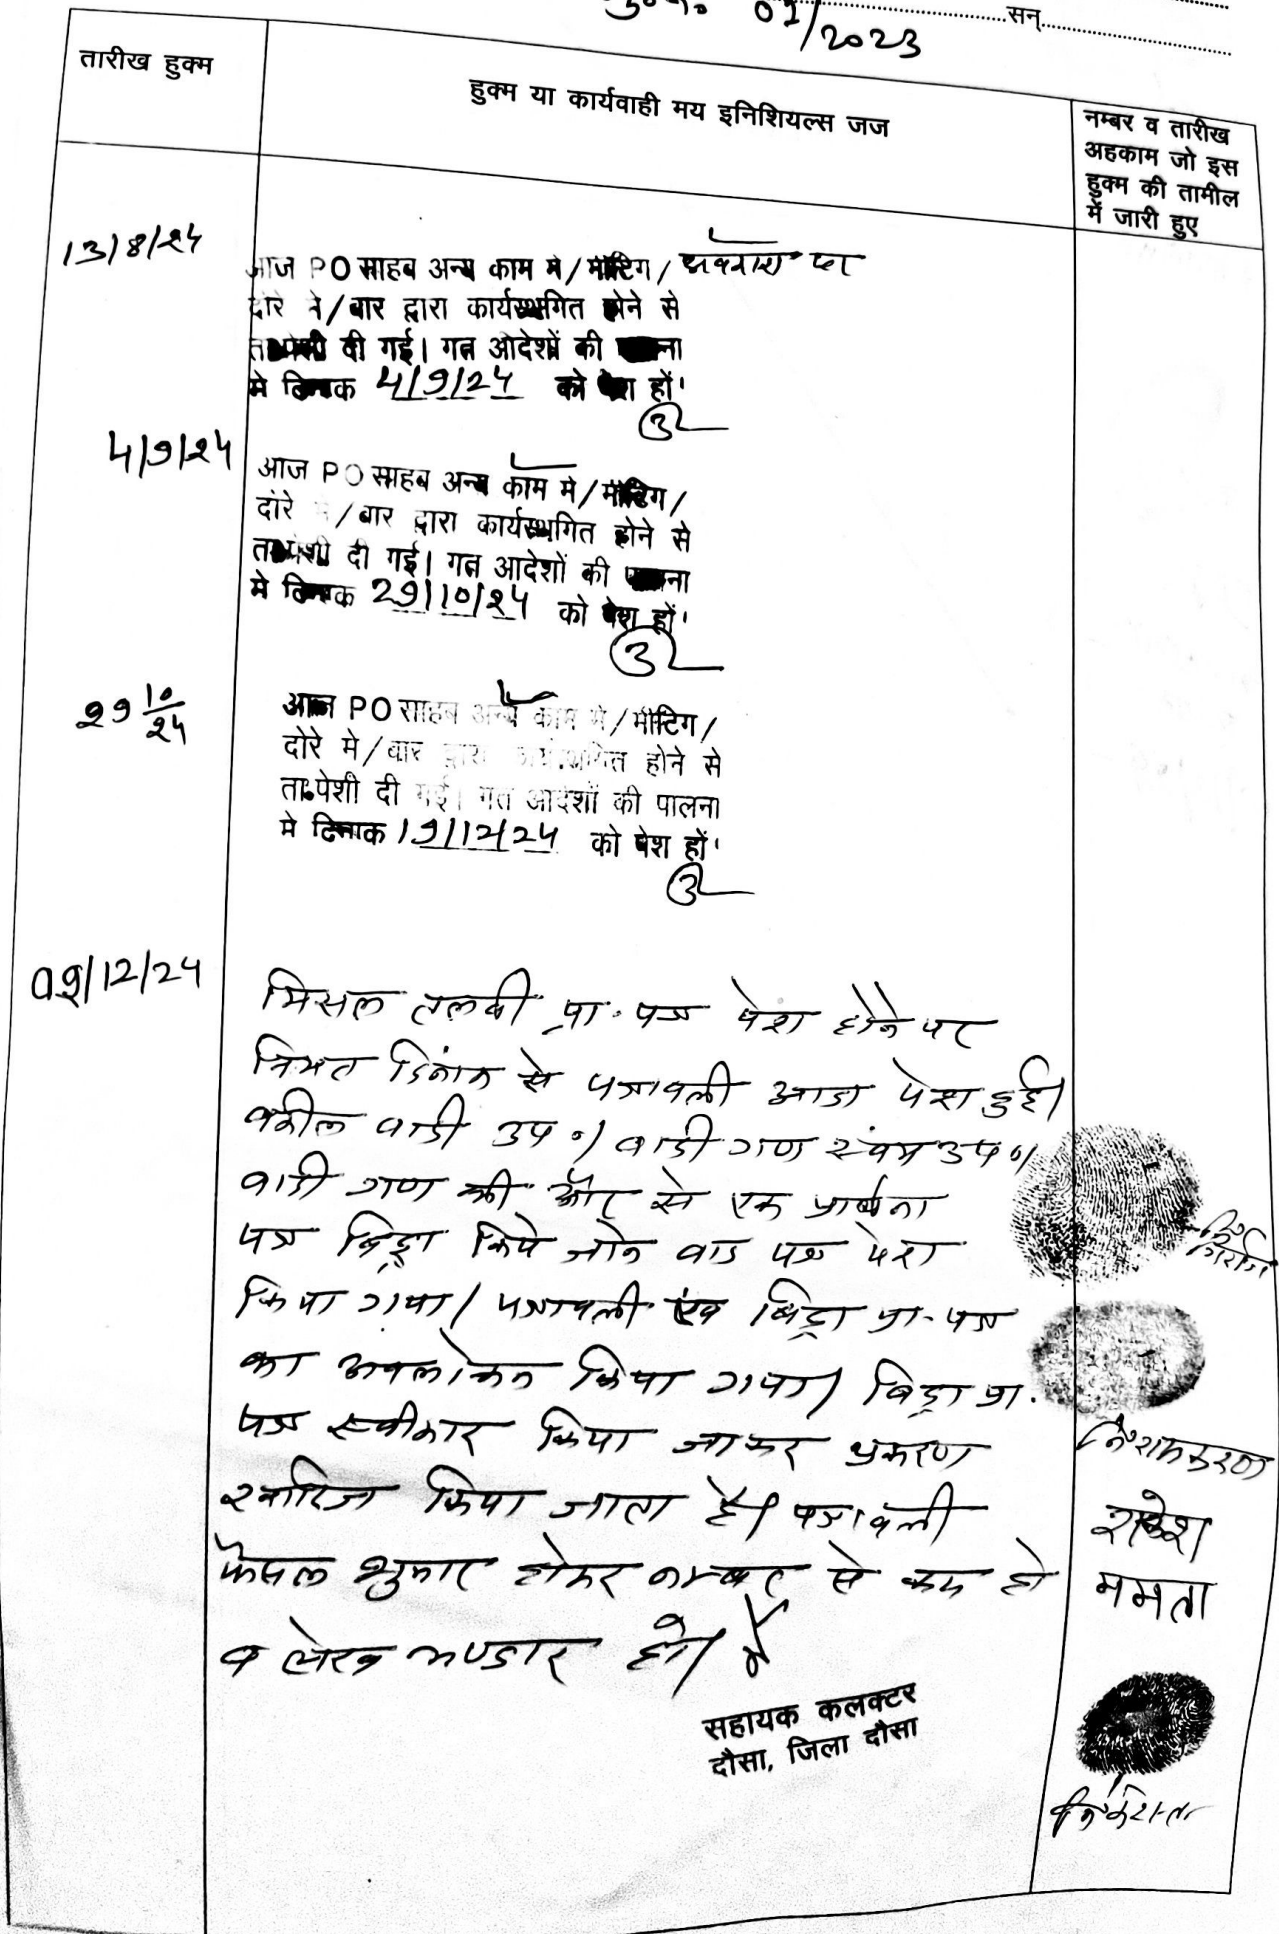 मु.न. 01/2023 सन्
तारीख हुक्म
हुक्म या कार्यवाही मय इनिशियल्स जज
नम्बर व तारीख
अहकाम जो इस
हुक्म की तामील
में जारी हुए
13/8/24
आज PO साहब अन्य काम मे/मीटिग/ अवकाश पर
दोरे मे/बार द्वारा कार्यस्थगित होने से
ता.पेशी दी गई। गत आदेशों की पालना
मे दिनाक 4/9/24 को पेश हों।
4/9/24
आज PO साहब अन्य काम मे/मीटिग/
दोरे मे/बार द्वारा कार्यस्थगित होने से
ता.पेशी दी गई। गत आदेशों की पालना
मे दिनाक 29/10/24 को पेश हों।
29 10/24
आज PO साहब अन्य काम मे/मीटिग/
दोरे मे/बार द्वारा कार्यस्थगित होने से
ता.पेशी दी गई। गत आदेशों की पालना
मे दिनाक 19/12/24 को पेश हों।
09/12/24
मिसल तलबी प्रा.पत्र पेश होने पर
नियत दिनांक से पत्रावली आज पेश हुई।
वकील वादी उप०। वादी गण स्वंय उप०।
वादी गण की और से एक प्रार्थना
पत्र विड्रा किये जाने वाद पत्र पेश
किया गया। पत्रावली एंव विड्रा प्रा.पत्र
का अवलोकन किया गया। विड्रा प्रा.
पत्र स्वीकार किया जाकर प्रकरण
खारिज किया जाता है। पत्रावली
फैसल शुमार होकर नम्बर से कम हो
व लेख भण्डार हो।
सहायक कलक्टर
दौसा, जिला दौसा
नि॰ रामकरण
राकेश
ममता